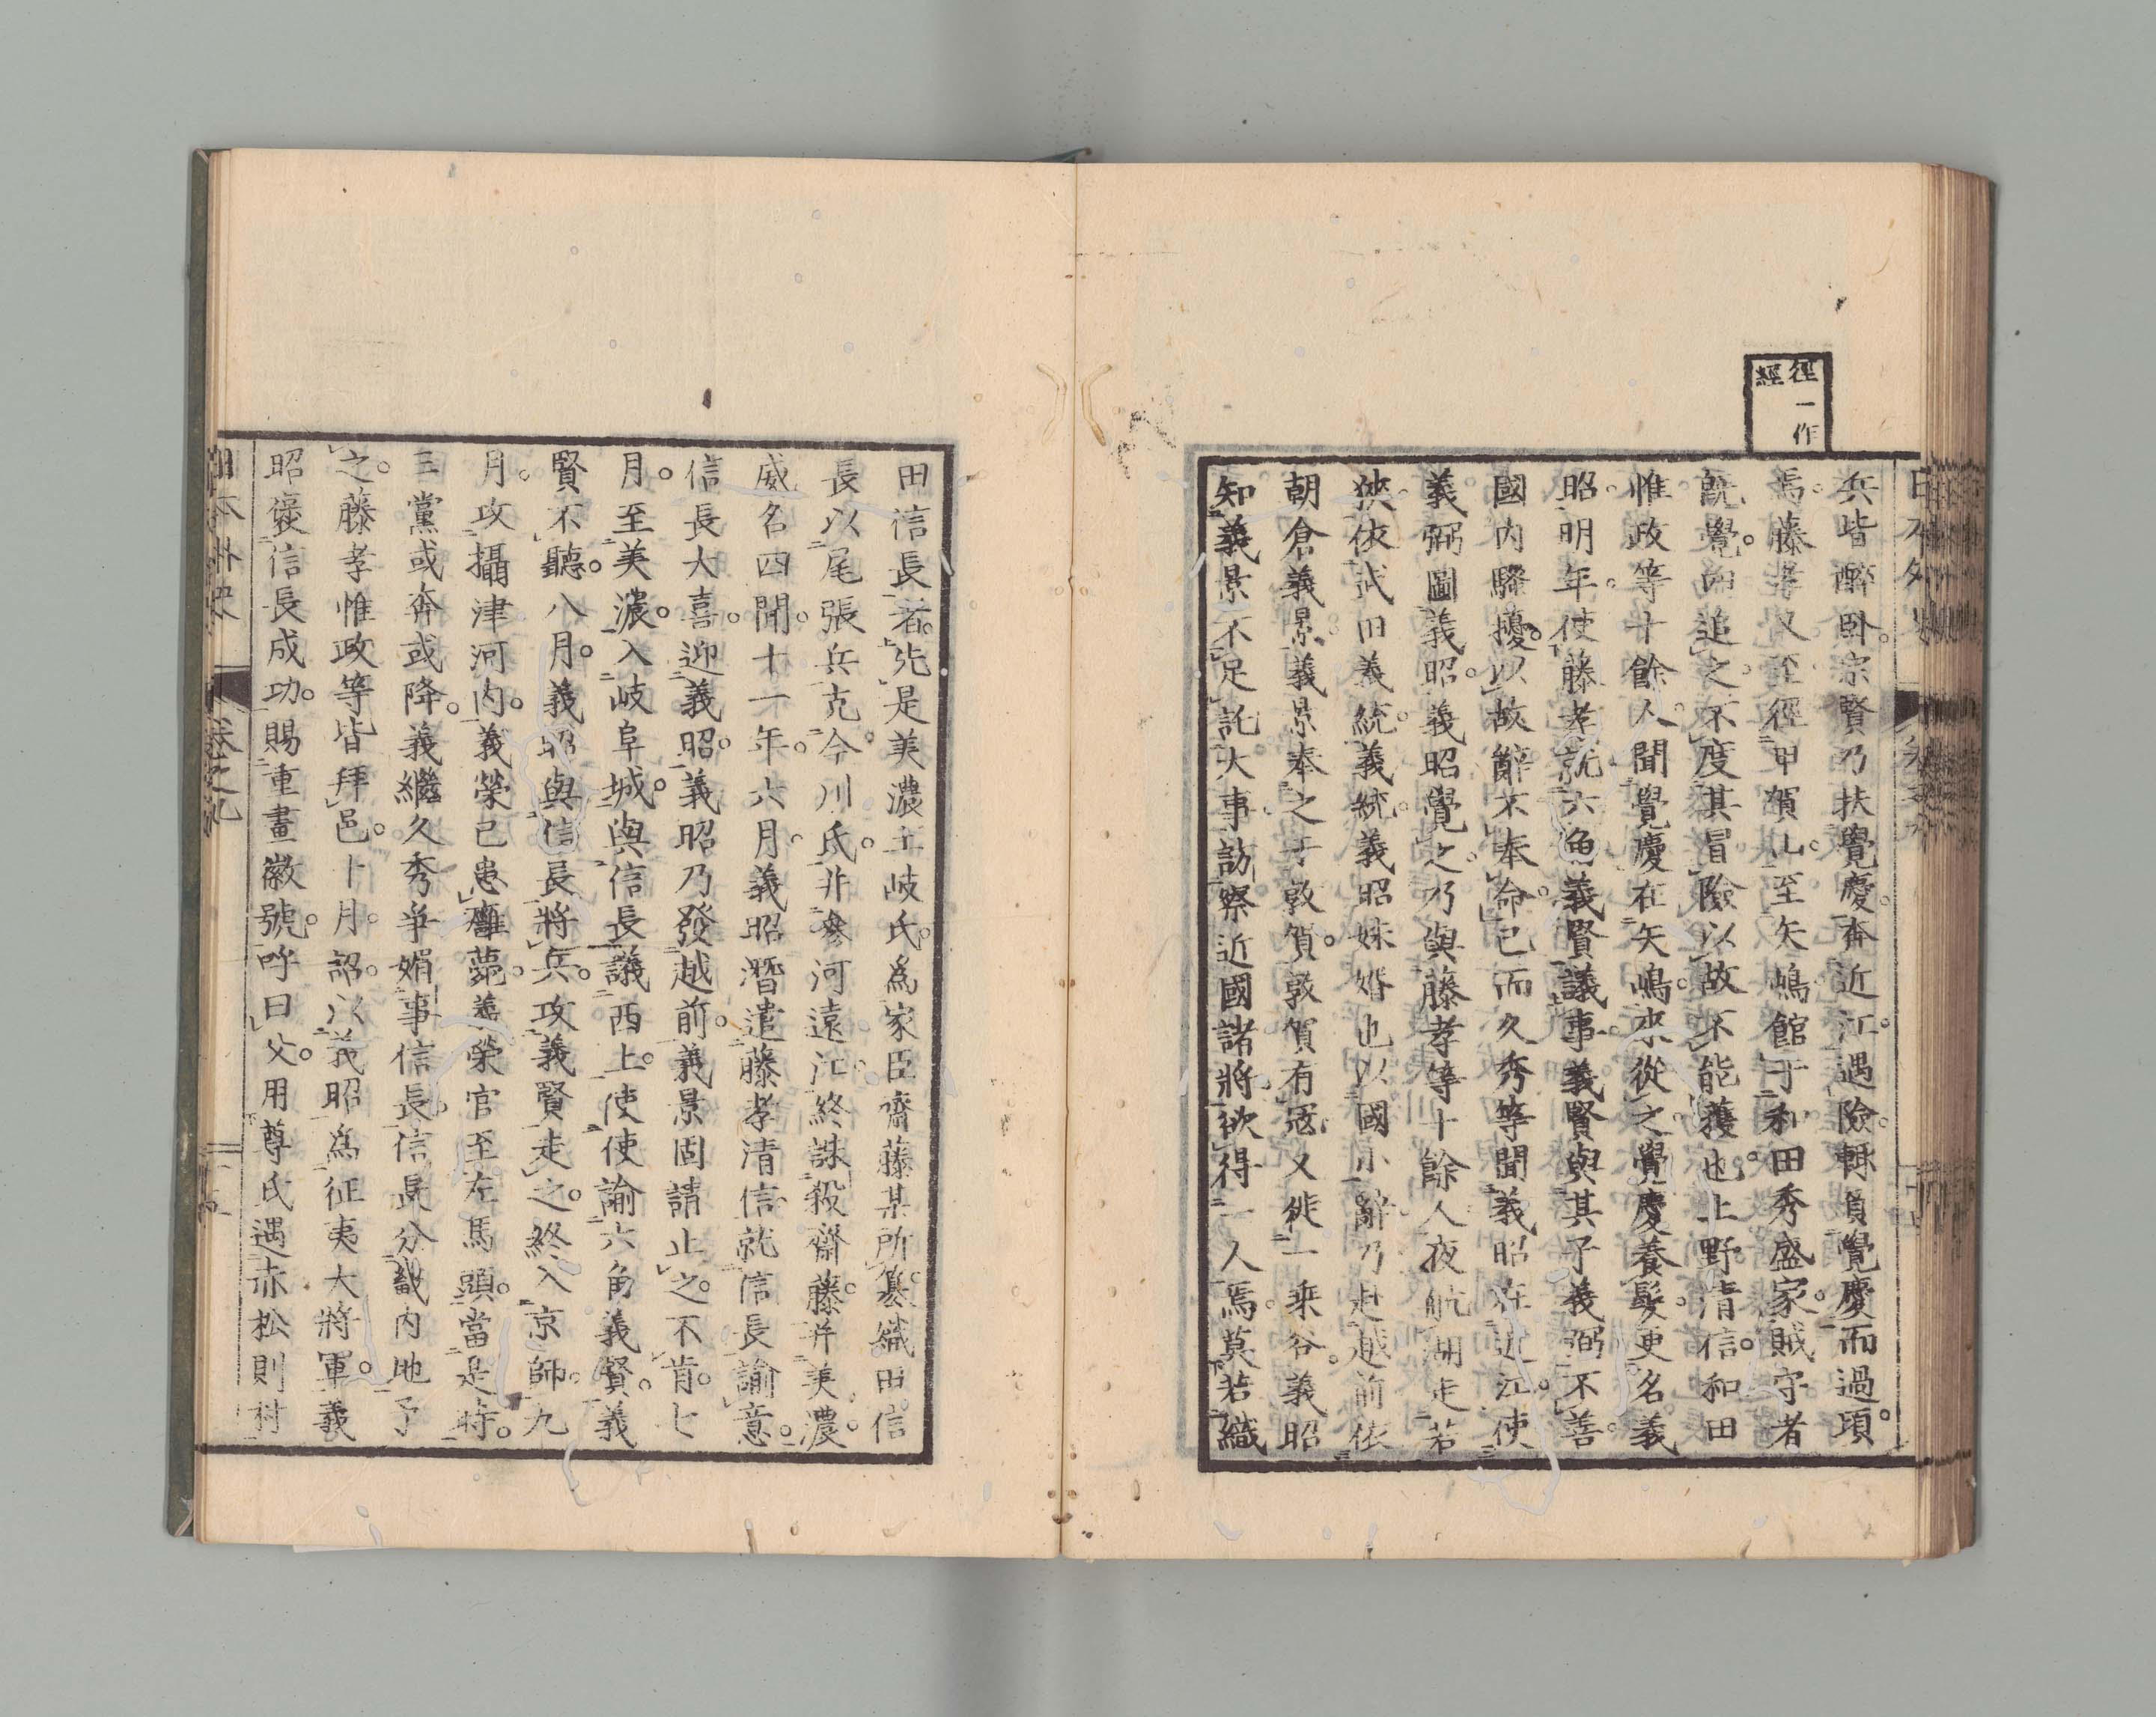 徑一作
經
兵皆醉臥。宗賢乃扶覺慶。奔近江。遇險。輙負覺慶而過。頃
焉。藤孝又至。徑甲賀山。至矢嶋。館于和田秀盛家。賊守者
既覺。而追之。不度其冒險。以故不能獲也。上野清信。和田
惟政等十餘人。聞覺慶在矢嶋。來從之。覺慶養髮。更名義
昭。明年。使藤孝就六角義賢議事。義賢與其子義弼不善。
國內騷擾。以故辭不奉命。已而久秀等聞義昭在近江。使
義弼圖義昭。義昭覺之。乃與藤孝等十餘人夜航湖走若
狹。依武田義統。義統。義昭妹婿也。以國小辭。乃赴越前依
朝倉義景。義景奉之于敦賀。敦賀有寇。又徙一乘谷。義昭
知義景不足託大事。訪察近國諸將。欲得一人焉。莫若織
田信長者。先是美濃土岐氏。為家臣齋藤某所簒。織田信
長以尾張兵克今川氏。非參河遠江。終誅殺齋藤。并美濃。
威名四聞。十一年。六月。義昭潛遣藤孝清信就信長諭意。
信長大喜。迎義昭。義昭乃發越前。義景固請止之。不肯。七
月。至美濃。入岐阜城。與信長議西上。使使諭六角義賢。義
賢不聽。八月。義昭與信長將兵。攻義賢走之。終入京師。九
月。攻攝津河內。義榮已患癰薨。義榮官至左馬頭。當是時。
三黨或奔或降。義繼久秀爭媚事信長。信長分畿內地予
之。藤孝惟政等皆拜邑。十月。詔以義昭為征夷大將軍。義
昭褒信長成功。賜重畫徽號。呼曰父。用尊氏遇赤松則村
日本外史 卷之九